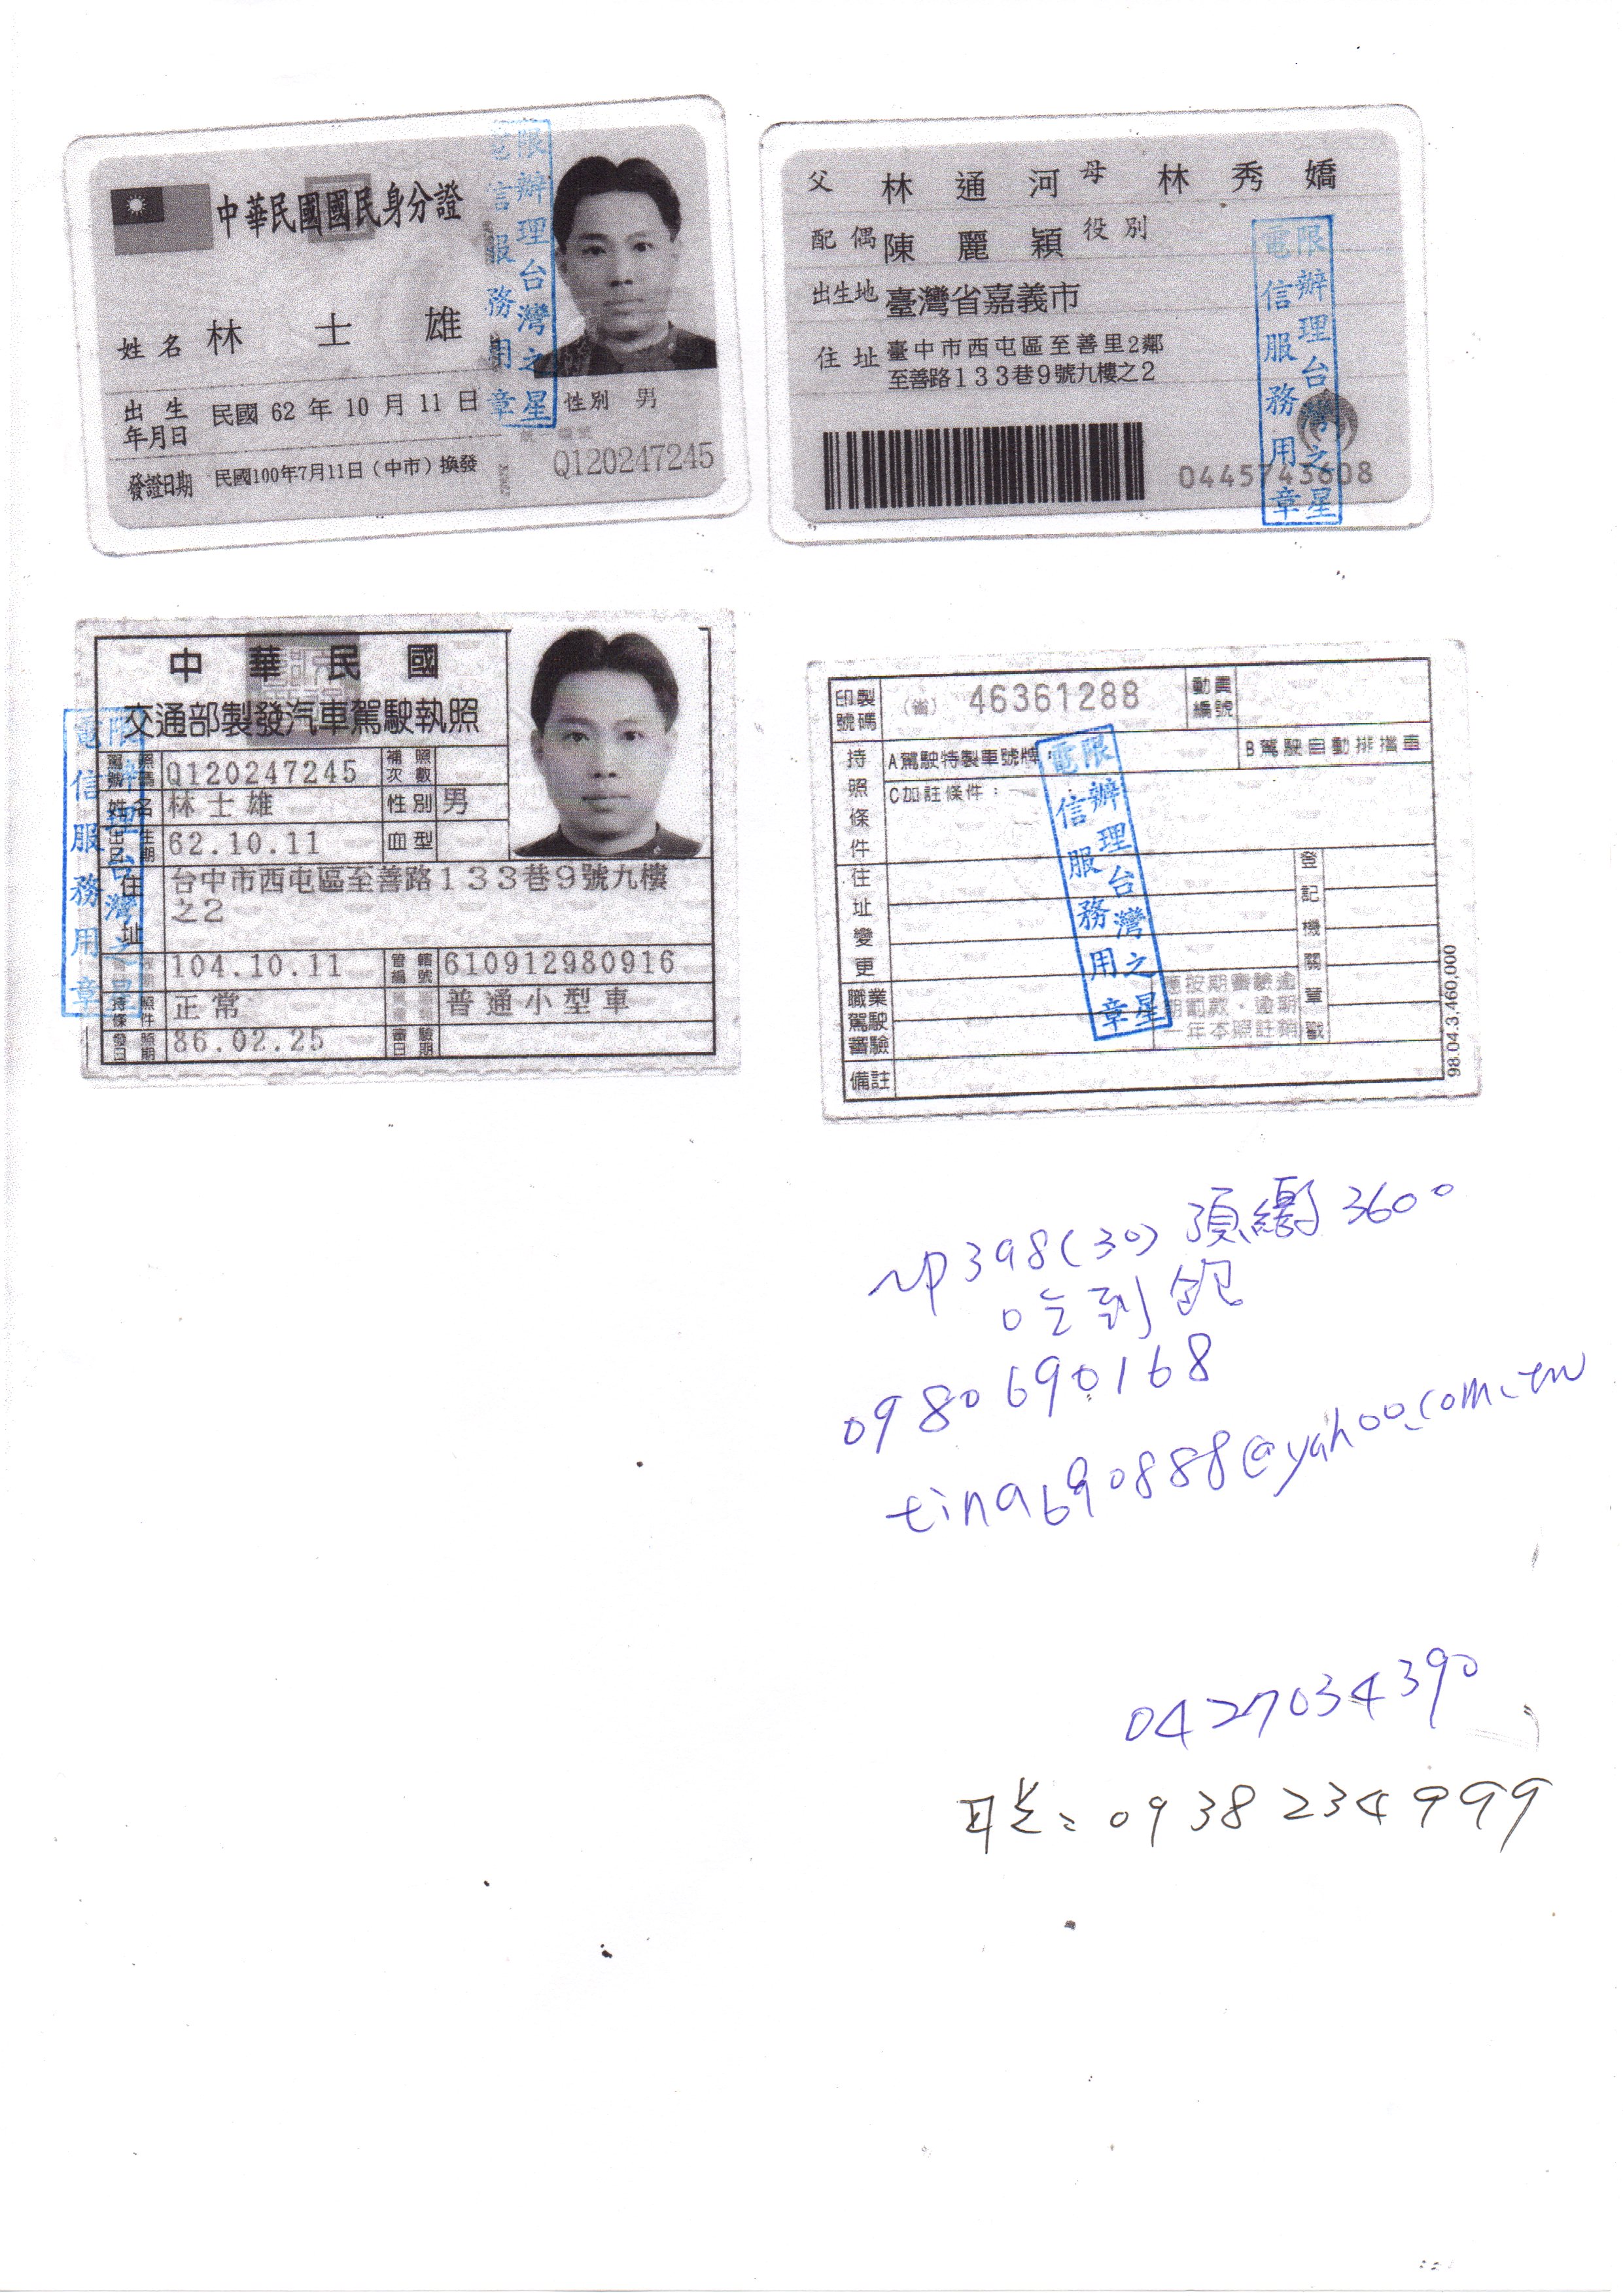 中華民國國民身分證
姓名 林士雄
出生年月日 民國 62 年 10 月 11 日
性別 男
發證日期 民國100年7月11日(中市)換發
Q120247245
限辦理台灣之星
電信服務用章
父 林通河 母 林秀嬌
配偶 陳麗穎 役別
出生地 臺灣省嘉義市
住址 臺中市西屯區至善里2鄰
至善路133巷9號九樓之2
0445743608
限辦理台灣之星
電信服務用章
中華民國
交通部製發汽車駕駛執照
駕照號碼 Q120247245 補照次數
姓名 林士雄 性別 男
出生日期 62.10.11 血型
住址 台中市西屯區至善路133巷9號九樓
之2
104.10.11 管轄編號 610912980916
持照條件 正常 普通小型車
發照日期 86.02.25 審驗日期
限辦理台灣之星
電信服務用章
印製號碼 (省) 46361288 動員編號
持照條件 A駕駛特製車號牌 B駕駛自動排擋車
C加註條件:
住址變更
登記機關章戳
職業駕駛審驗
應按期審驗逾
期罰款,逾期
一年本照註銷
備註
98.04.3,460,000
限辦理台灣之星
電信服務用章
398(30) 預繳 3600
吃到飽
0980690168
tina690888@yahoo.com.tw
0427034390
联: 0938234999